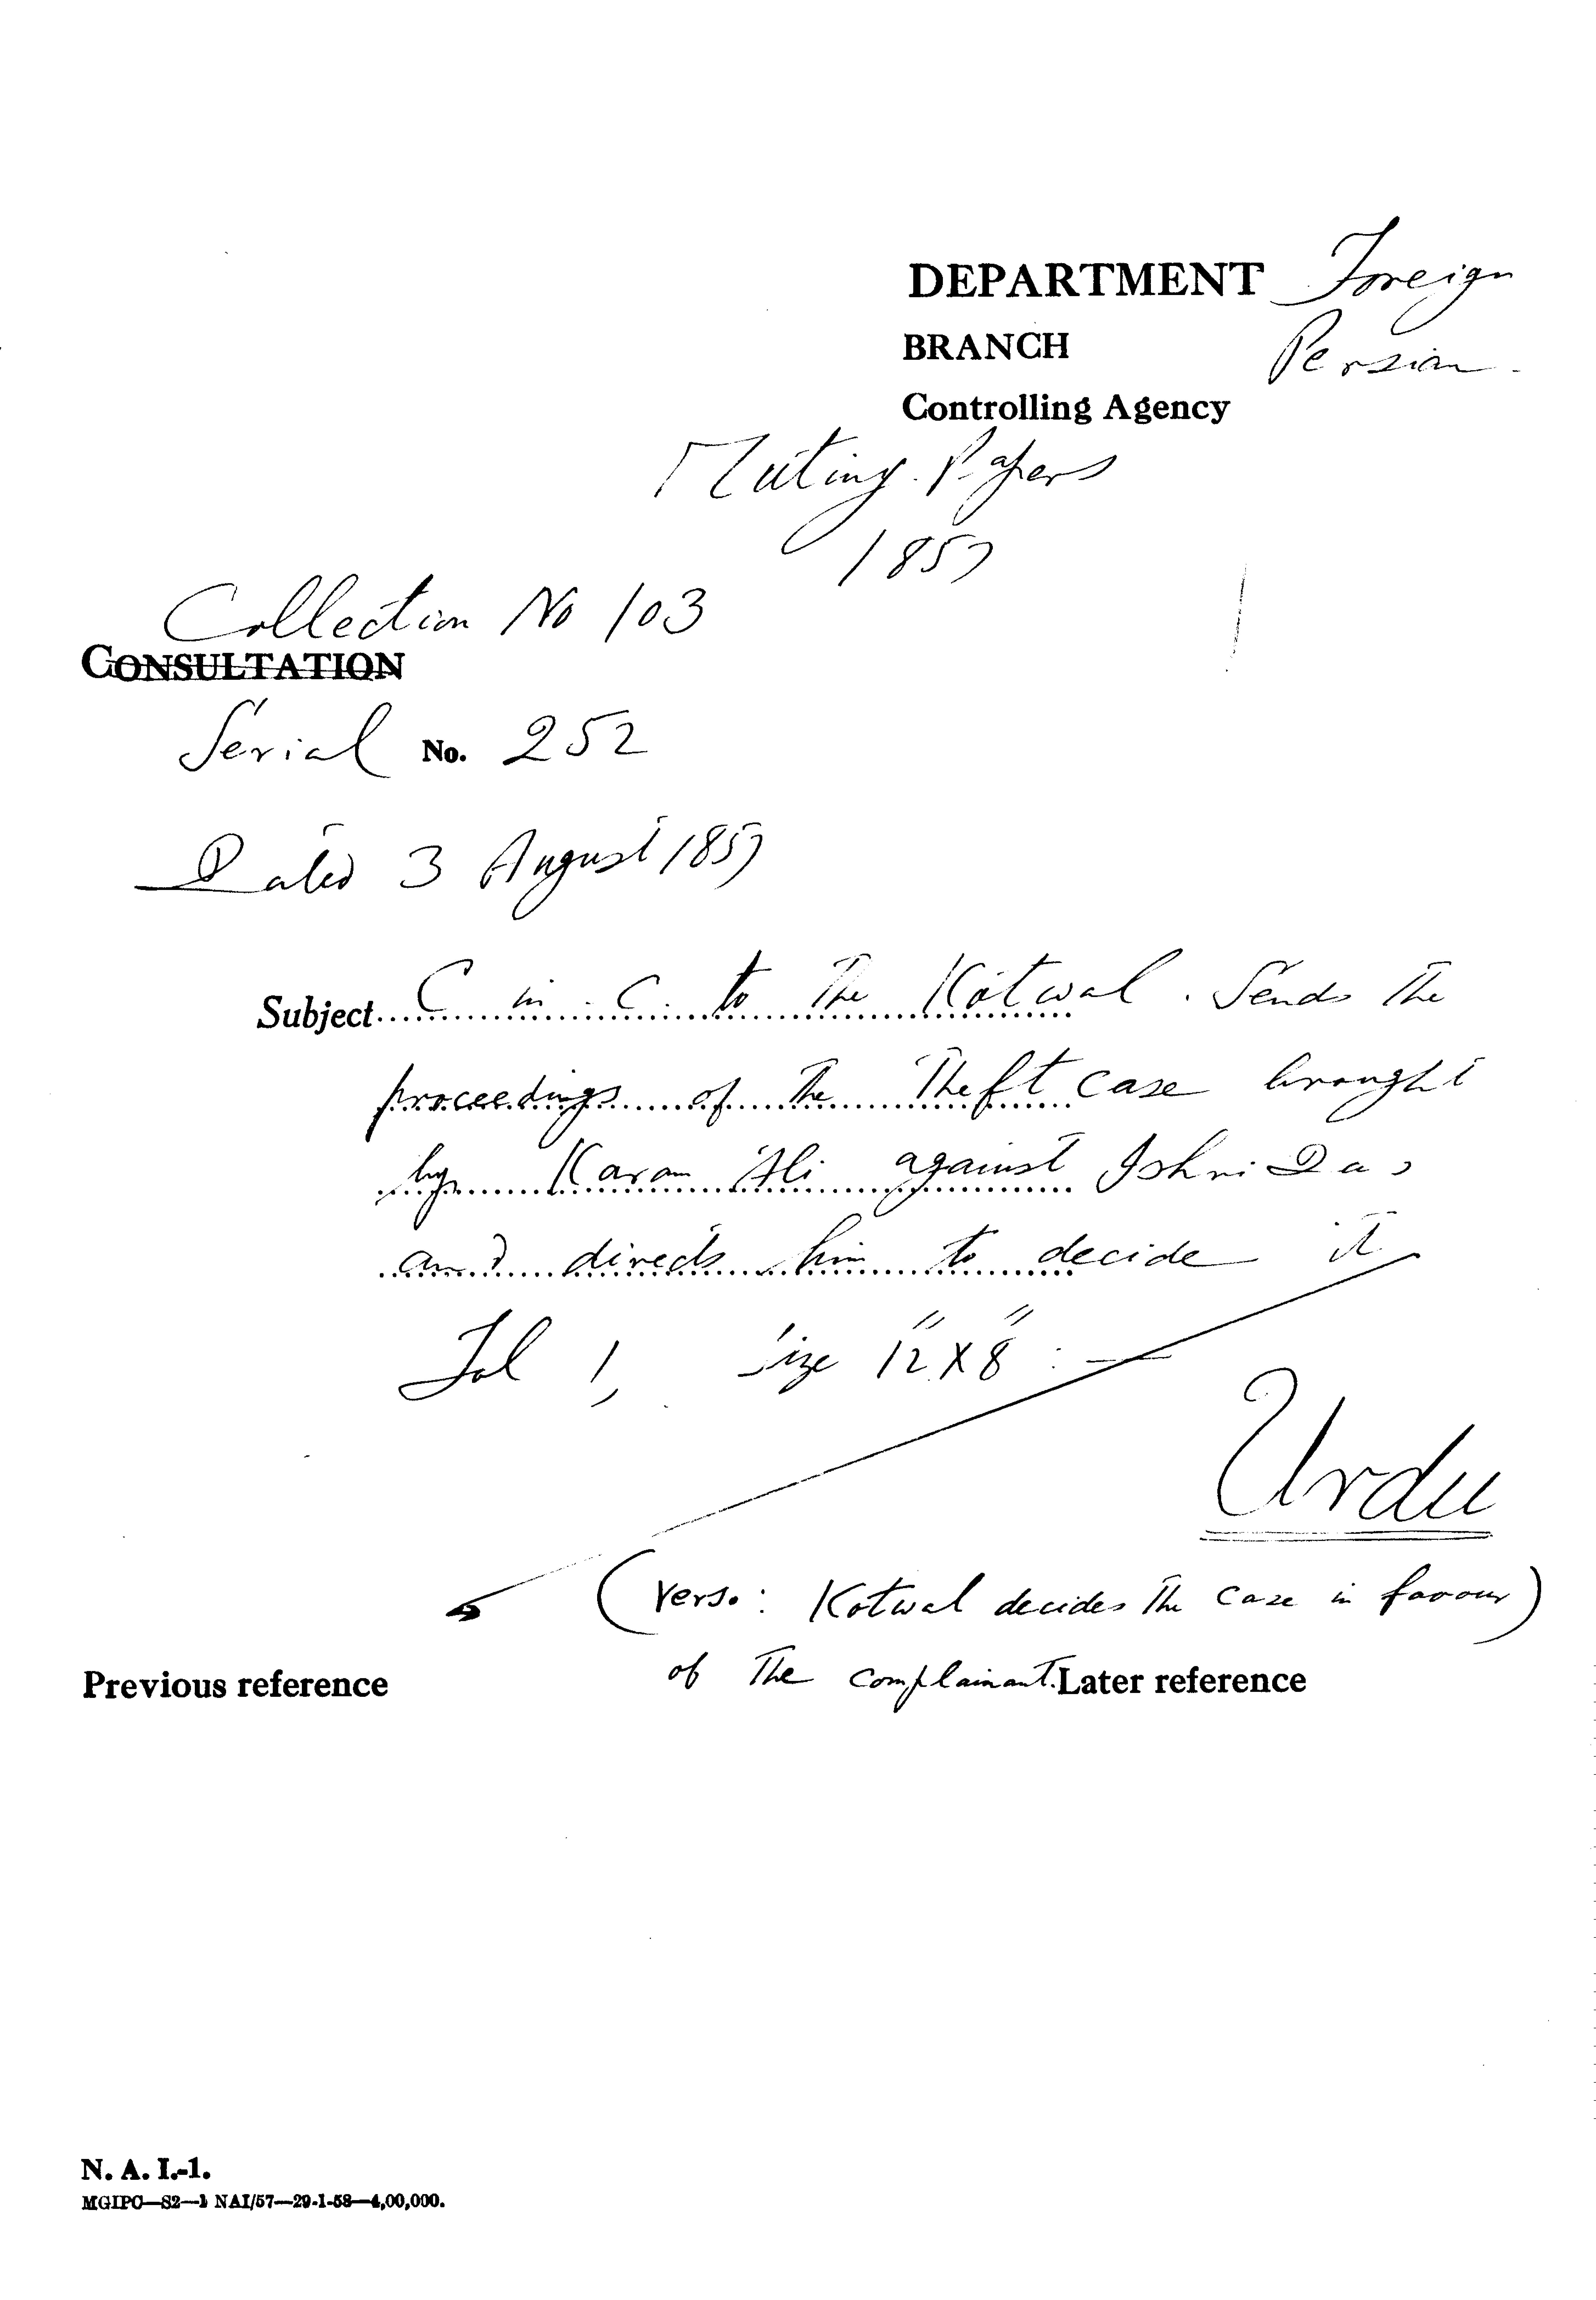 DEPARTMENT Foreign
BRANCH Persian.
Controlling Agency
Mutiny Papers
1857
Collection No 103
CONSULTATION
Serial No. 252
Dated 3 August 1857
Subject C in C. to The Kotwal. Sends The
proceedings of The Theft case brought
by Karam Ali against Ishri Das
and directs him to decide it
Fol 1, Size 12" X 8" :—
Urdu
(Verso: Kotwal decides The case in favour)
of The complainant.
Previous reference Later reference
N. A. I.-1.
MGIPC—S2—1 NAI/57—29-1-58—4,00,000.